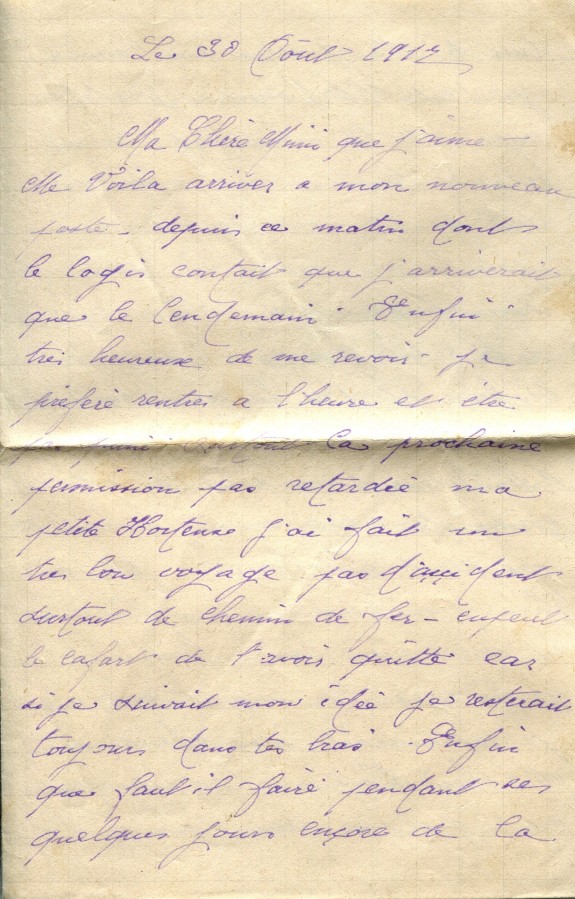 Le 30 Août 1917
Ma Chère Mimi que j'aime -
Me Voila arriver a mon nouveau
poste - depuis ce matin dont
le logis contait que j'arriverait
que le lendemain. Enfin
tres heureux de me revoir - je
préfère rentrer a l'heure et être
pas puni surtout la prochaine
permission pas retardée ma
petite Hortense j'ai fait un
tres bon voyage pas d'accident
surtout de chemin de fer -
le cafart de t'avois quitté car
si je suivait mon idée je resterait
toujours dans tes bras. Enfin
que faut il faire pendant ses
quelques jours encore de la